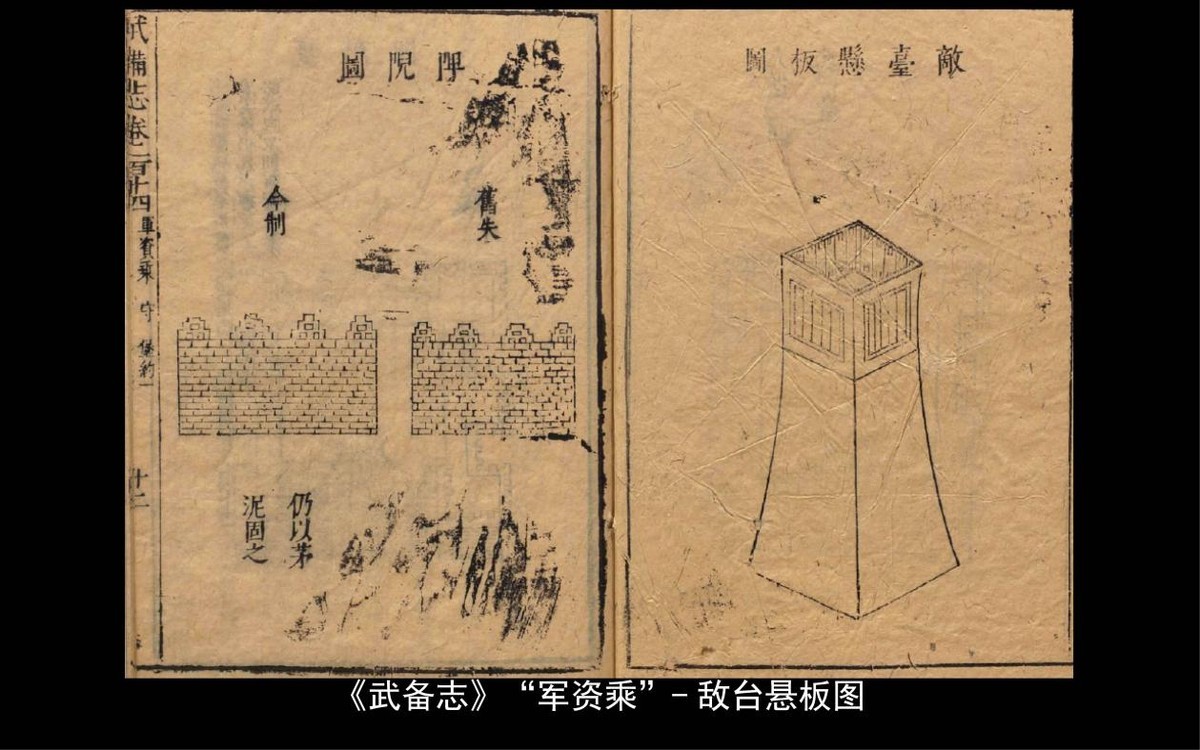 敵臺懸板圖
睥睨圖
舊失
今制
仍以茅
泥固之
武備志卷一百十四
軍資乘 守 堡約一
十二
《武备志》“军资乘”-敌台悬板图